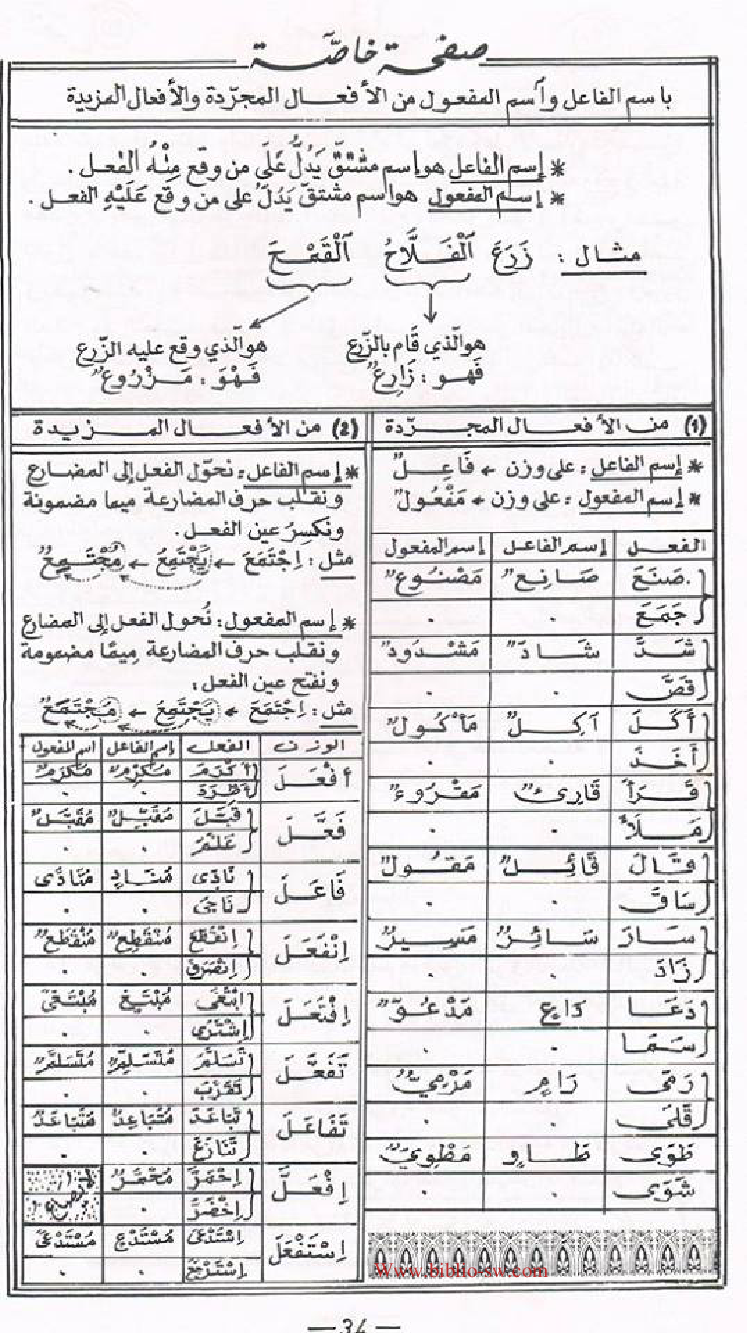 صفحة خاصّة
باسم الفاعل وٱسم المفعول من الأفعال المجرّدة والأفعال المزيدة
* إسم الفاعل هو إسم مشتقّ يَدُلُّ عَلَى من وقع مِنْهُ الفعل .
* إسم المفعول هو اسم مشتقّ يَدُلُّ على من وقع عَلَيْهِ الفعل .
مثال : زَرَعَ ٱلْفَلَّاحُ ٱلْقَمْحَ
هو الّذي قَام بالزّرع
فَهو : زَارِعٌ
هو الّذي وقع عليه الزّرع
فَهْوَ : مَزْرُوعٌ
(1) من الأفعال المجرّدة
* إسم الفاعل : على وزن ← فَاعِلٌ
* إسم المفعول : على وزن ← مَفْعُولٌ
الفعل إسم الفاعل إسم المفعول
صَنَعَ صَانِعٌ مَصْنُوعٌ
جَمَعَ . .
شَدَّ شَادٌّ مَشْدُودٌ
قَصَّ . .
أَكَلَ آكِلٌ مَأكُولٌ
أَخَذَ . .
قَرَأَ قَارِئٌ مَقْرُوءٌ
مَلَأَ . .
قَالَ قَائِلٌ مَقُولٌ
سَاقَ . .
سَارَ سَائِرٌ مَسِيرٌ
زَادَ . .
دَعَا دَاعٍ مَدْعُوٌّ
سَمَا . .
رَمَى رَامٍ مَرْمِيٌّ
قَلَى . .
طَوَى طَاوٍ مَطْوِيٌّ
شَوَى . .
(2) من الأفعال المزيدة
* إسم الفاعل : نحوّل الفعل إلى المضارع
ونقلب حرف المضارعة ميما مضمونة
ونكسِرُ عين الفعل .
مثل : اِجْتَمَعَ ← يَجْتَمِعُ ← مُجْتَمِعٌ
* إسم المفعول : نُحول الفعل إلى المضارع
ونقلب حرف المضارعة مِيمًا مضمومة
ونفتح عين الفعل :
مثل : اِجْتَمَعَ ← يَجْتَمِعُ ← مُجْتَمَعٌ
الوزن الفعل إسم الفاعل اسم المفعول
أفْعَلَ أكْرَمَ مُكْرِمٌ مُكْرَمٌ
أطْرَدَ . .
فَعَّلَ قَبَّلَ مُقَبِّلٌ مُقَبَّلٌ
عَلَّمَ . .
فَاعَلَ نَادَى مُنَادٍ مُنَادًى
نَاجَى . .
اِنْفَعَلَ اِنْقَطَعَ مُنْقَطِعٌ مُنْقَطَعٌ
اِنْصَرَفَ . .
اِفْتَعَلَ اِبْتَغَى مُبْتَغٍ مُبْتَغًى
اِشْتَرَى . .
تَفَعَّلَ تَسَلَّمَ مُتَسَلِّمٌ مُتَسَلَّمٌ
تَقَرَّبَ . .
تَفَاعَلَ تَبَاعَدَ مُتَبَاعِدٌ مُتَبَاعَدٌ
تَنَازَعَ . .
اِفْعَلَّ اِحْمَرَّ مُحْمَرٌّ
اِخْضَرَّ .
اِسْتَفْعَلَ اِسْتَدْعَى مُسْتَدْعٍ مُسْتَدْعًى
اِسْتَرْجَعَ . .
Www.biblio-sw.com
— 34 —